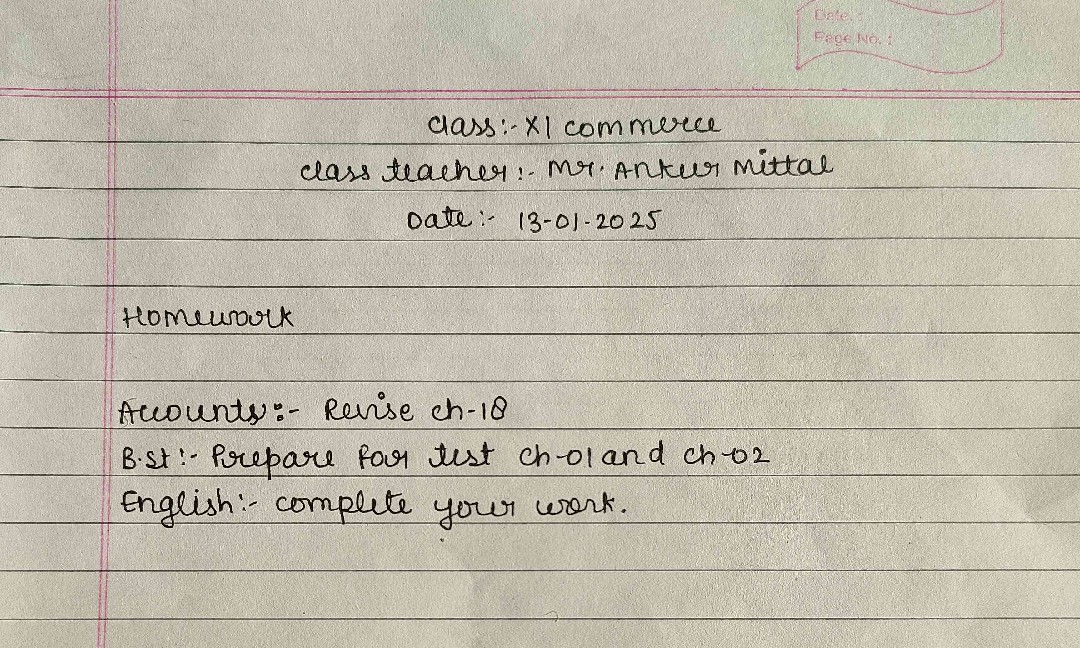 Date. :
Page No. :
class:- XI commerce
class teacher:- Mr. Ankur Mittal
Date:- 13-01-2025
Homework
Accounts:- Revise ch-18
B.st:- Prepare for test ch-01 and ch-02
English:- complete your work.